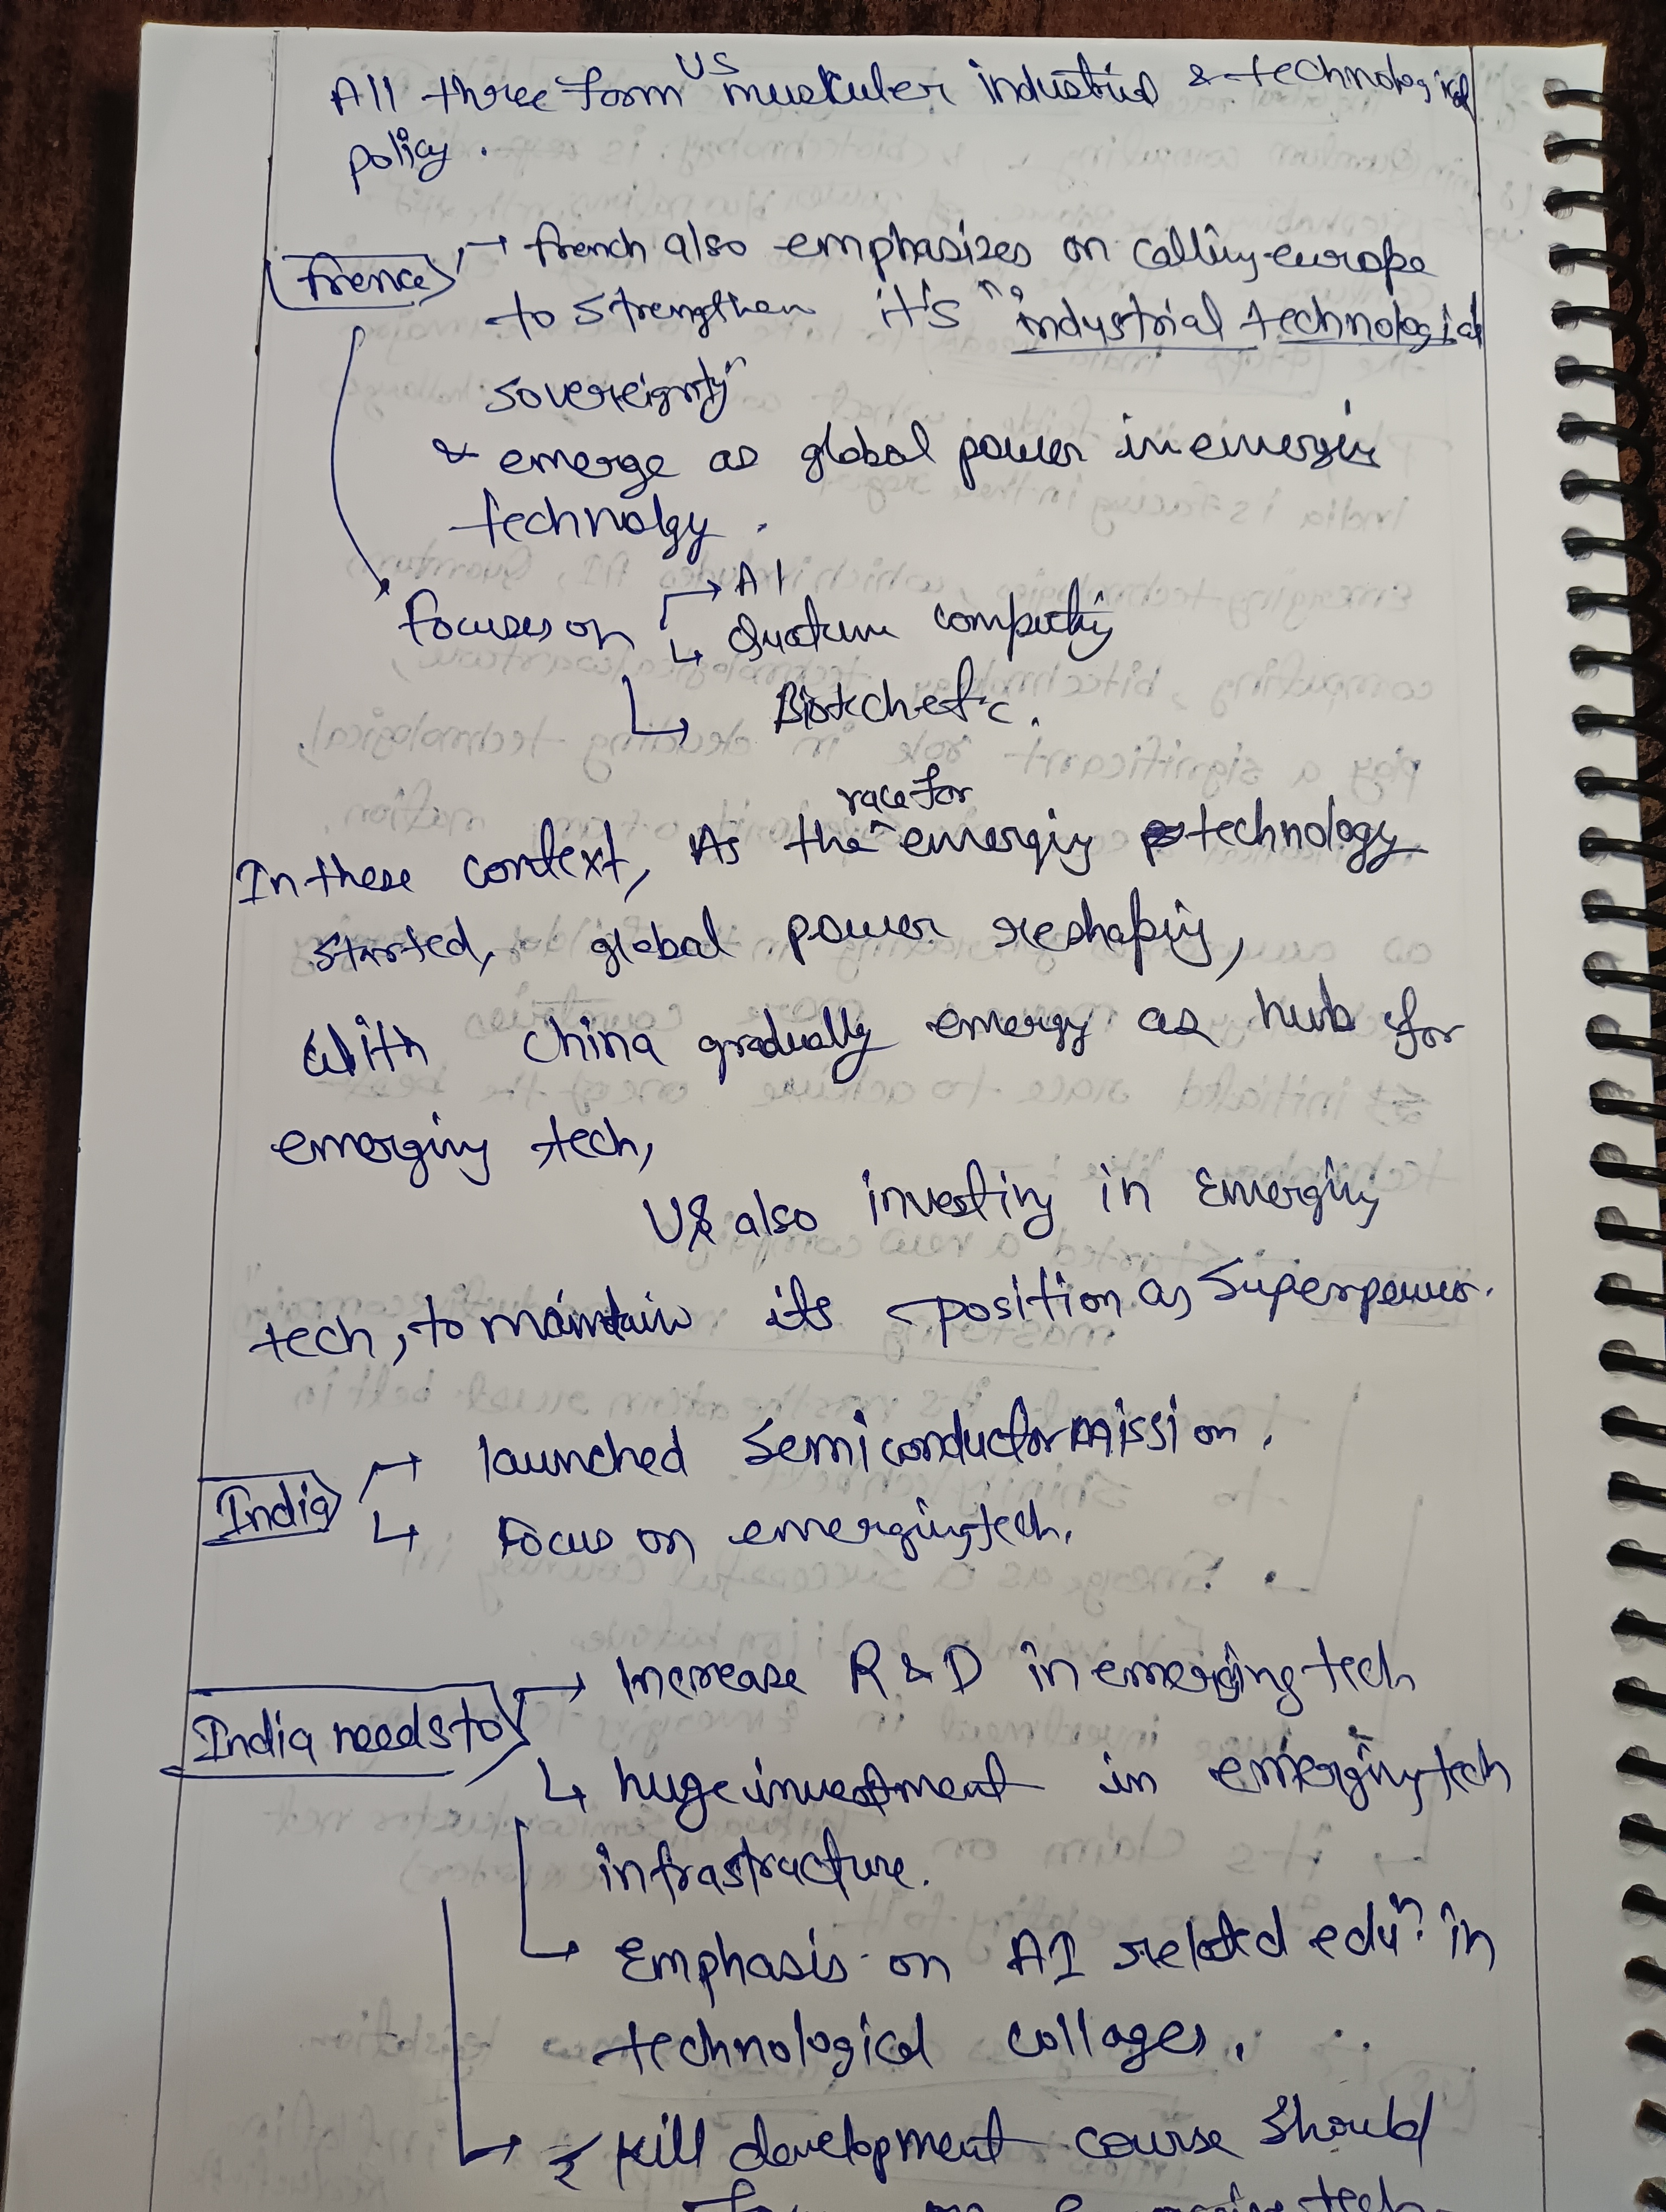 All three form US muskuler industrial & technological
policy.
france → french also emphasizes on calling europe
to strengthen it's "industrial technological
sovereignty"
& emerge as global power in emergin
technolgy.
focuses on → AI
↳ Quatum computing
↳ Biotech etc.
In these context, As the race for emerging technology
started, global power reshaping,
With china gradually emergy as hub for
emerging tech,
US also investing in Emerging
tech, to maintain its position as Superpower.
India → launched Semiconductor Mission.
↳ Focus on emerging tech.
India needs to → Increase R & D in emerging tech
↳ huge investment in emerging tech
infrastructure.
↳ Emphasis on AI related eduⁿ. in
technological collages.
↳ Skill development course should